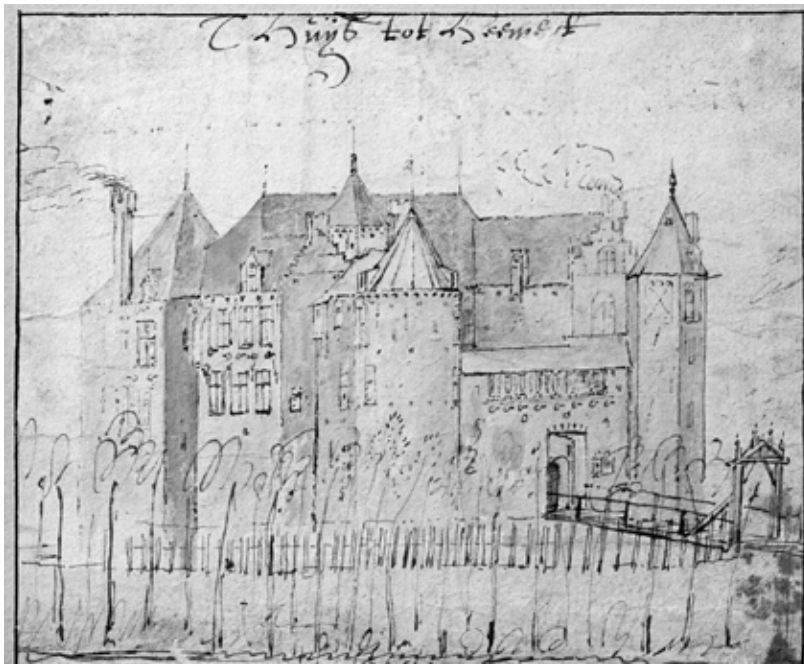 T Huÿs tot Heemert